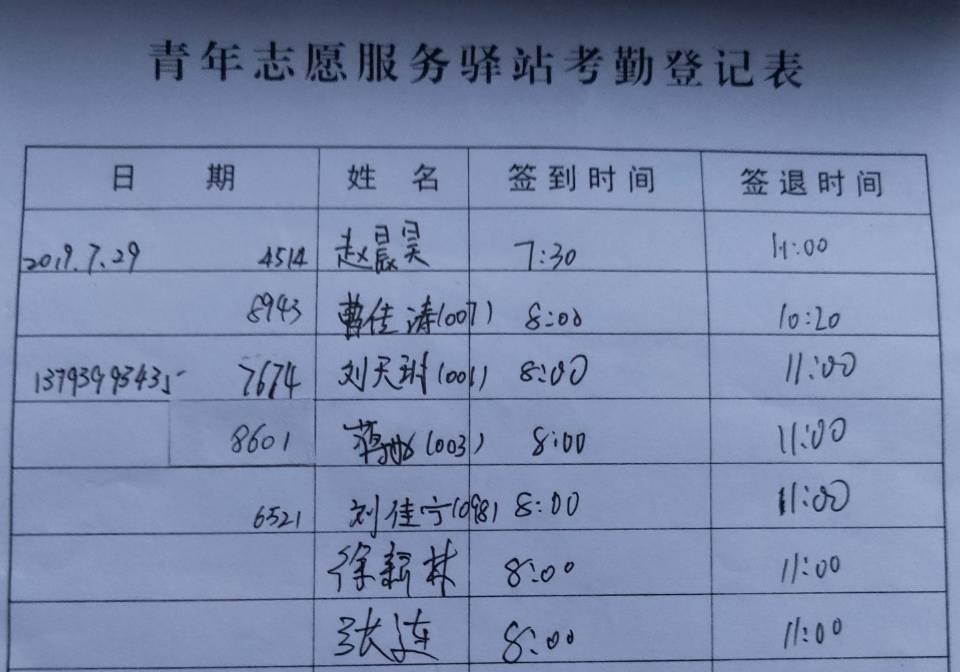 青年志愿服务驿站考勤登记表
日 期 姓 名 签到时间 签退时间
2019.7.29 4514 赵晨昊 7:30 11:00
8943 曹佳涛(007) 8:00 10:20
13793993435 7674 刘天琳(001) 8:00 11:00
8601 (003) 8:00 11:00
6521 刘佳宁(098) 8:00 11:00
徐新林 8:00 11:00
张连 8:00 11:00